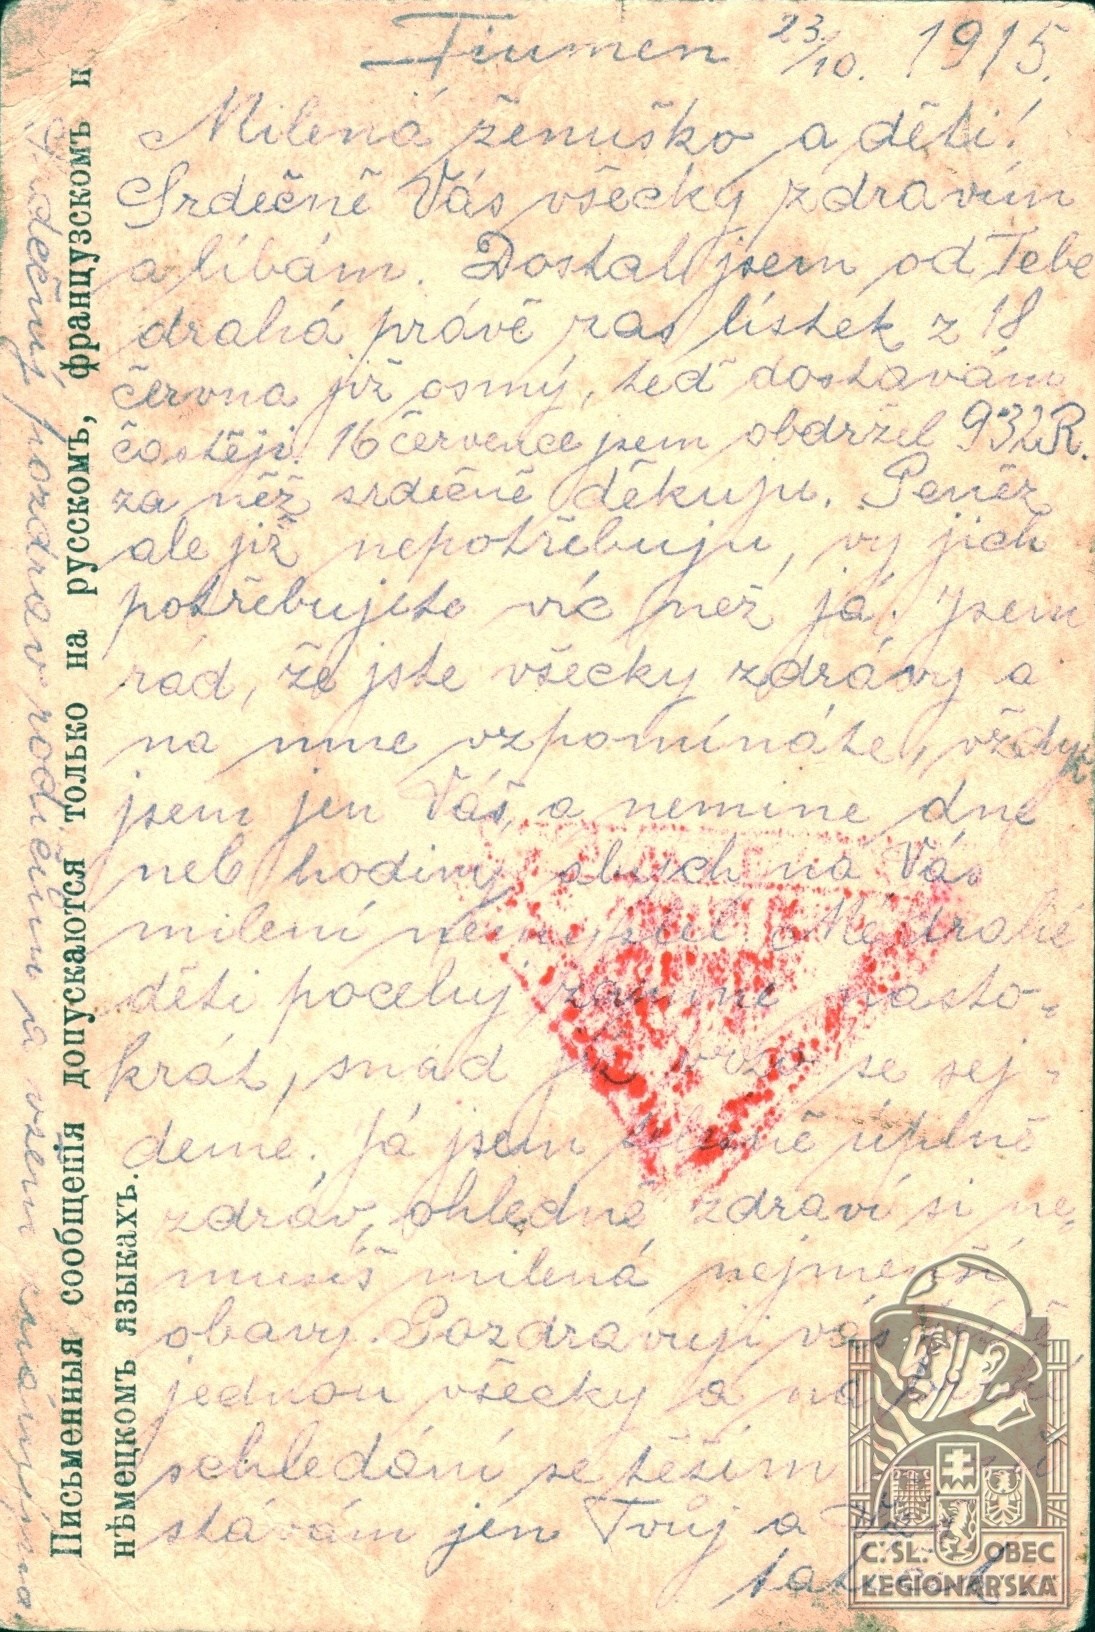 Tiumen 23/10. 1915.
Milená ženuško a děti!
Srdečně Vás všecky zdravím
a líbám. Dostal jsem od Tebe
drahá právě zas lístek z 18
června již osmý, teď dostávám
častěji. 16 července jsem obdržel 932R.
za něž srdečně děkuju. Peněz
ale již nepotřebuju, vy jich
potřebujete víc než já. Jsem
rád, že jste všecky zdrávy a
na mne vzpomínáte, vždyť
jsem jen Váš, a nemine dne
neb hodiny abych na Vás
milení nemyslel. Mé drahé
děti poceluj za mne nasto-
krát, snad již brzo se sej-
deme. Já jsem tělesně úplně
zdráv, ohledně zdraví si ne-
musíš milená nejmenší
obavy. Pozdravuji vás
jednou všecky a na
schledání se těším
stávám jen Tvůj a
Srdečný pozdrav rodičům a všem známým.
Письменныя сообщенія допускаются только на русскомъ, французскомъ и
нѣмецкомъ языкахъ.
Č.SL. OBEC
LEGIONÁŘSKÁ